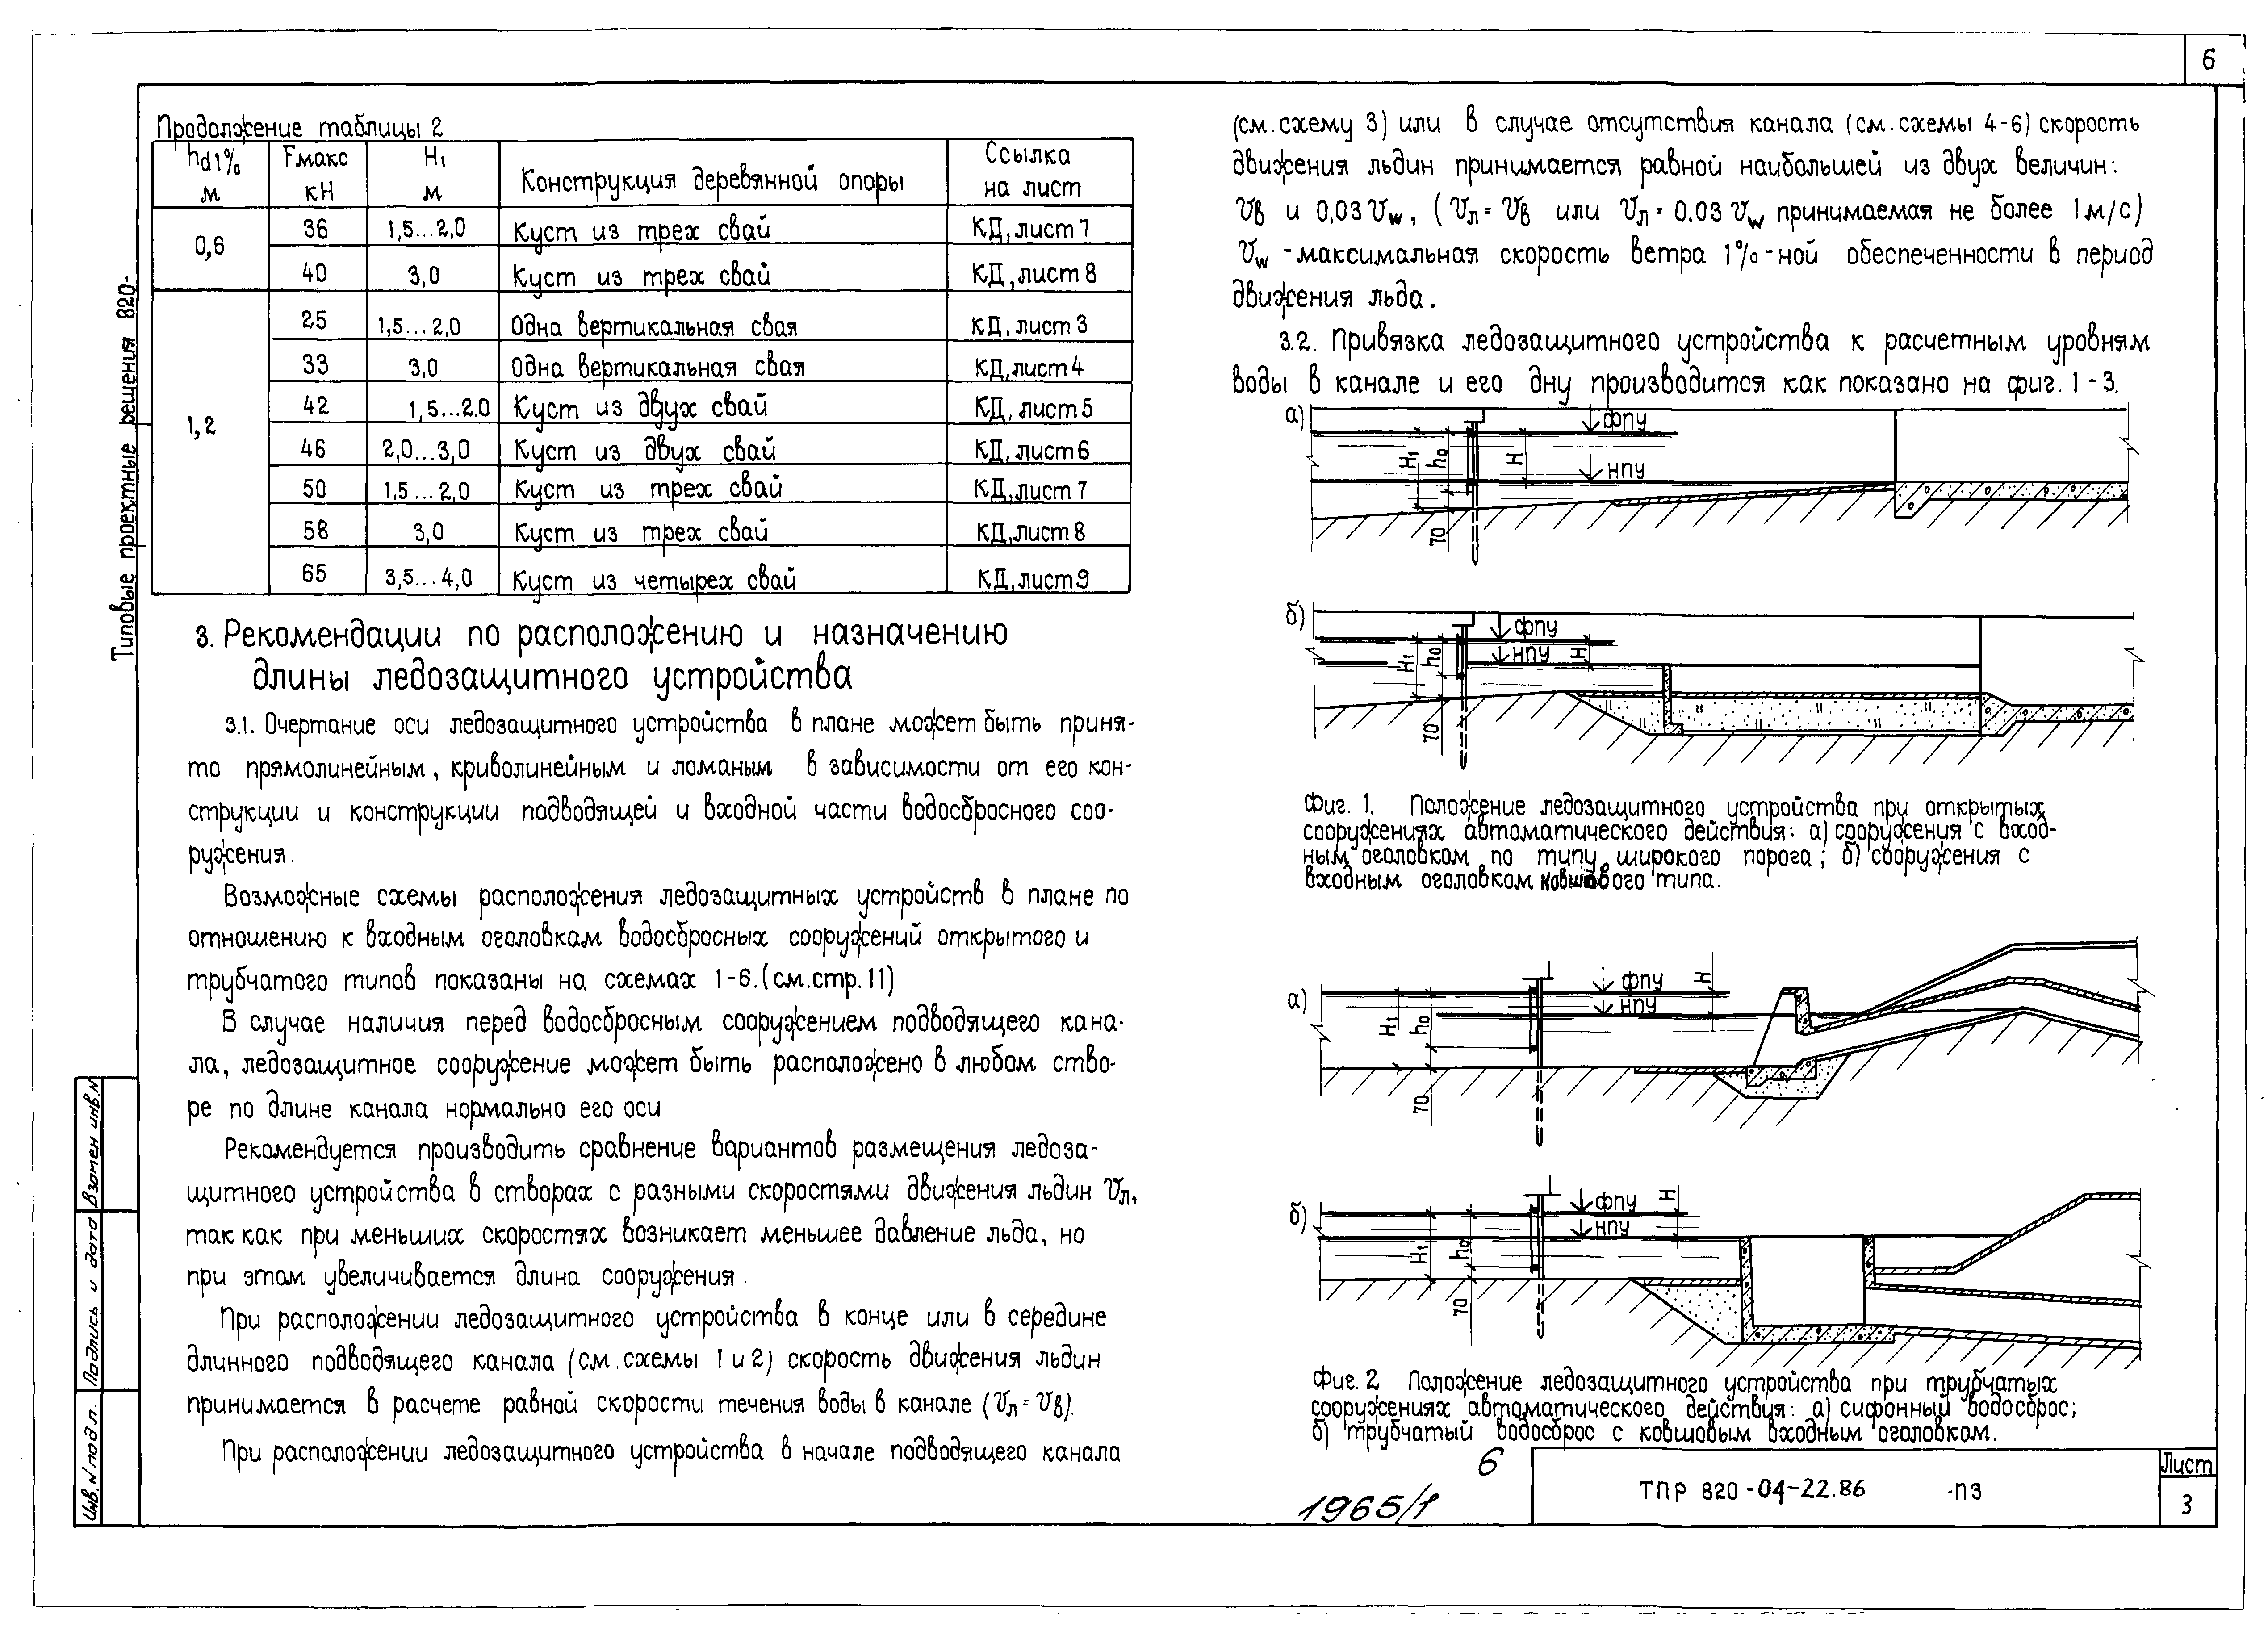 6
Продолжение таблицы 2
hd1% м | Fмакс кН | H₁ м | Конструкция деревянной опоры | Ссылка на лист
0,6 | 36 | 1,5...2,0 | Куст из трех свай | КД, лист 7
40 | 3,0 | Куст из трех свай | КД, лист 8
1,2 | 25 | 1,5...2,0 | Одна вертикальная свая | КД, лист 3
33 | 3,0 | Одна вертикальная свая | КД, лист 4
42 | 1,5...2.0 | Куст из двух свай | КД, лист 5
46 | 2,0...3,0 | Куст из двух свай | КД, лист 6
50 | 1,5...2,0 | Куст из трех свай | КД, лист 7
58 | 3,0 | Куст из трех свай | КД, лист 8
65 | 3,5...4,0 | Куст из четырех свай | КД, лист 9
3. Рекомендации по расположению и назначению
длины ледозащитного устройства
3.1. Очертание оси ледозащитного устройства в плане может быть приня-
то прямолинейным, криволинейным и ломаным в зависимости от его кон-
струкции и конструкции подводящей и входной части водосбросного соо-
ружения.
Возможные схемы расположения ледозащитных устройств в плане по
отношению к входным оголовкам водосбросных сооружений открытого и
трубчатого типов показаны на схемах 1-6. (см.стр. 11)
В случае наличия перед водосбросным сооружением подводящего кана-
ла, ледозащитное сооружение может быть расположено в любом ство-
ре по длине канала нормально его оси
Рекомендуется производить сравнение вариантов размещения ледоза-
щитного устройства в створах с разными скоростями движения льдин Vл,
так как при меньших скоростях возникает меньшее давление льда, но
при этом увеличивается длина сооружения.
При расположении ледозащитного устройства в конце или в середине
длинного подводящего канала (см.схемы 1 и 2) скорость движения льдин
принимается в расчете равной скорости течения воды в канале (Vл = Vв).
При расположении ледозащитного устройства в начале подводящего канала
(см. схему 3) или в случае отсутствия канала (см. схемы 4-6) скорость
движения льдин принимается равной наибольшей из двух величин:
Vв и 0,03 Vw, (Vл = Vв или Vл = 0.03 Vw принимаемая не более 1м/с)
Vw - максимальная скорость ветра 1%-ной обеспеченности в период
движения льда.
3.2. Привязка ледозащитного устройства к расчетным уровням
воды в канале и его дну производится как показано на фиг. 1-3.
а)
ФПУ
НПУ
H₁
h₀
H
70
б)
ФПУ
НПУ
H₁
h₀
H
70
Фиг. 1. Положение ледозащитного устройства при открытых
сооружениях автоматического действия: а) сооружения с вход-
ным оголовком по типу широкого порога; б) сооружения с
входным оголовком ковшового типа.
а)
ФПУ
НПУ
H
H₁
h₀
70
б)
ФПУ
НПУ
H
H₁
h₀
70
Фиг. 2 Положение ледозащитного устройства при трубчатых
сооружениях автоматического действия: а) сифонный водосброс;
б) трубчатый водосброс с ковшовым входным оголовком.
6
1965/1
ТПР 820-04-22.86 -ПЗ
Лист
3
Типовые проектные решения 820-
Взамен инв.N
Подпись и дата
Инв.N подл.